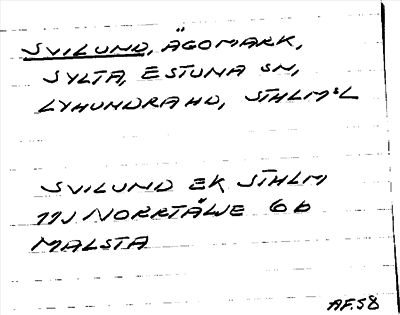 SVILUND, ÄGOMARK,
SYLTA, ESTUNA SN,
LYHUNDRA HD, STHLM:S L
SVILUND EK STHLM
11J NORRTÄLJE 6b
MALSTA
AF.58